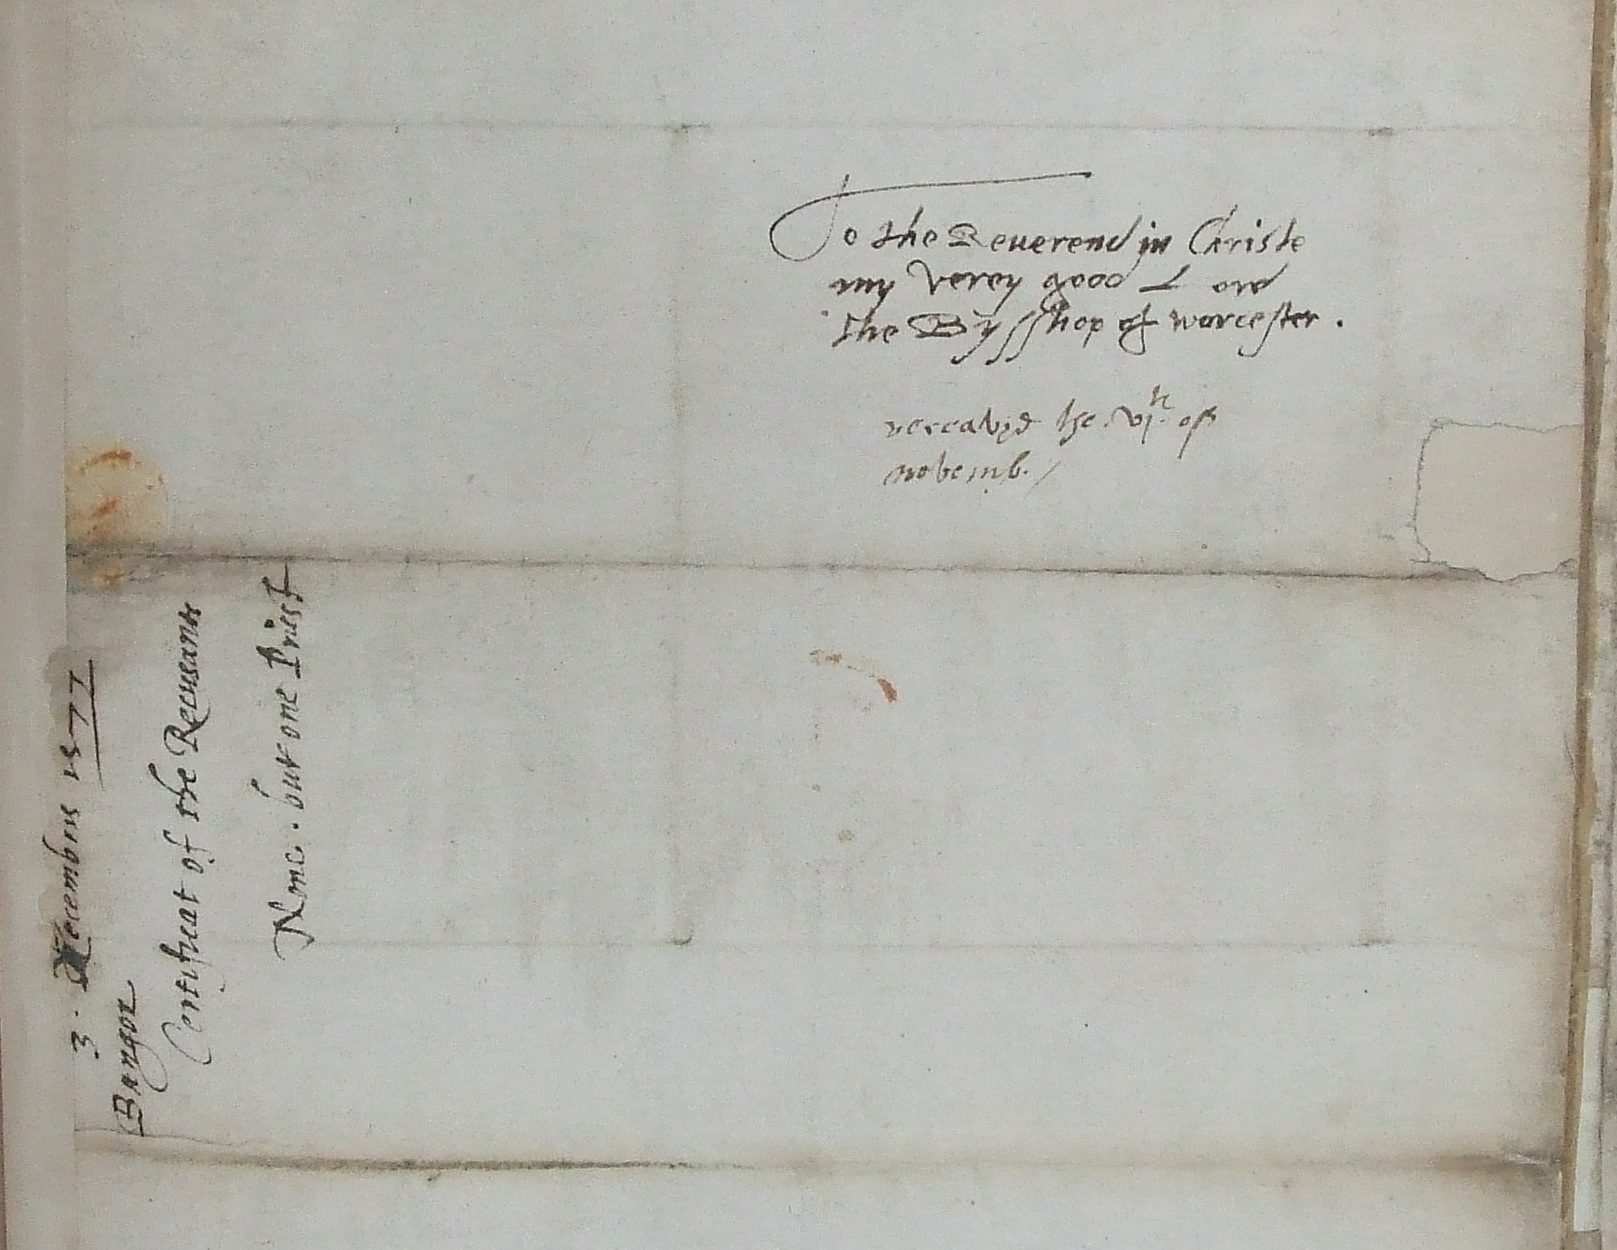 To the Reuerend in Christe
my verey good Lord
the Bysshop of worcester .
receavyd the vjth. of
novemb. /
3 . Decembris 1577
Bangor
Certificat of the Recusants
None . but one Priest